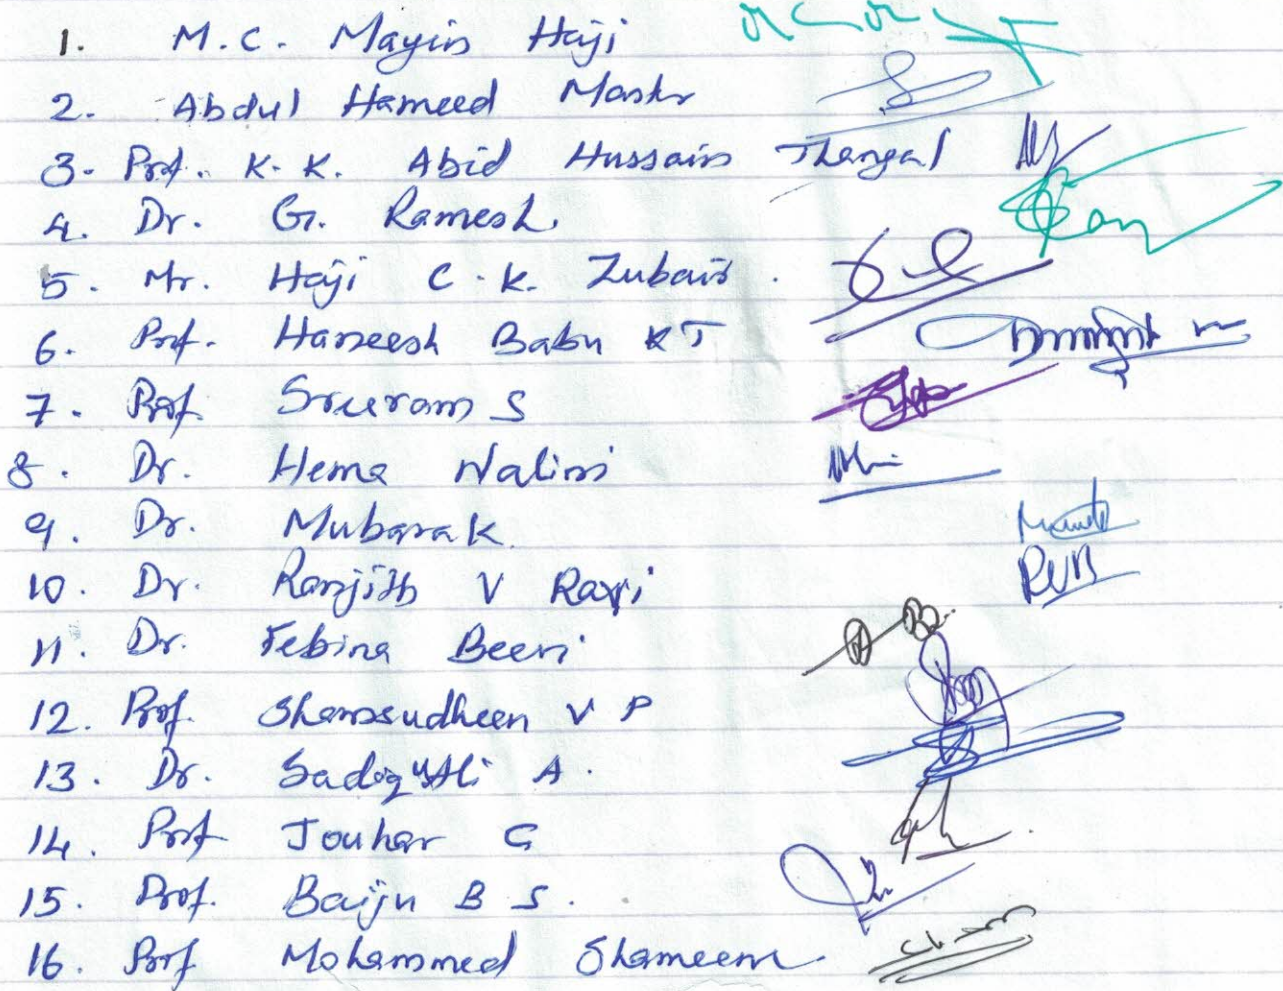 1. M.C. Mayin Haji
2. Abdul Hameed Mastr
3. Prof. K.K. Abid Hussain Thangal
4. Dr. G. Ramesh.
5. Mr. Haji C.K. Zubair.
6. Prof. Haneesh Babu KT
7. Prof. Sreeram S
8. Dr. Hema Nalini
9. Dr. Mubarak
10. Dr. Ranjith V Ravi
11. Dr. Febina Beevi
12. Prof. Shamsudheen V P
13. Dr. Sadiq Ali A.
14. Prof Jouhar G
15. Prof. Baiju B S.
16. Prof Mohammed Shameem